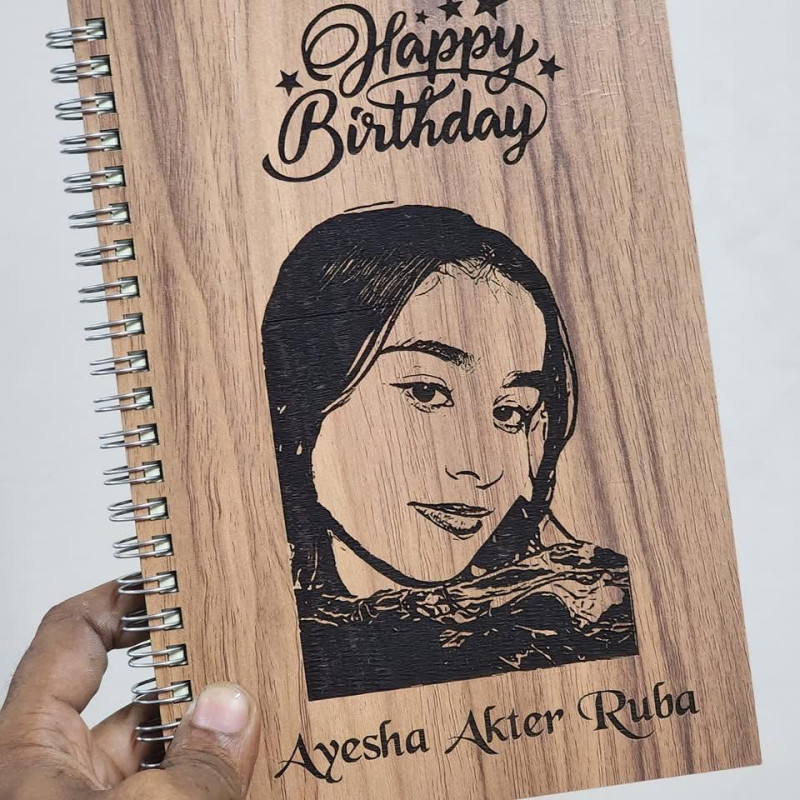 Happy
Birthday
Ayesha Akter Ruba